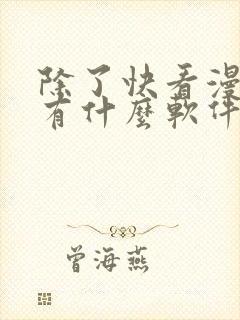 除了快看漫
有什麼軟件
曾海燕